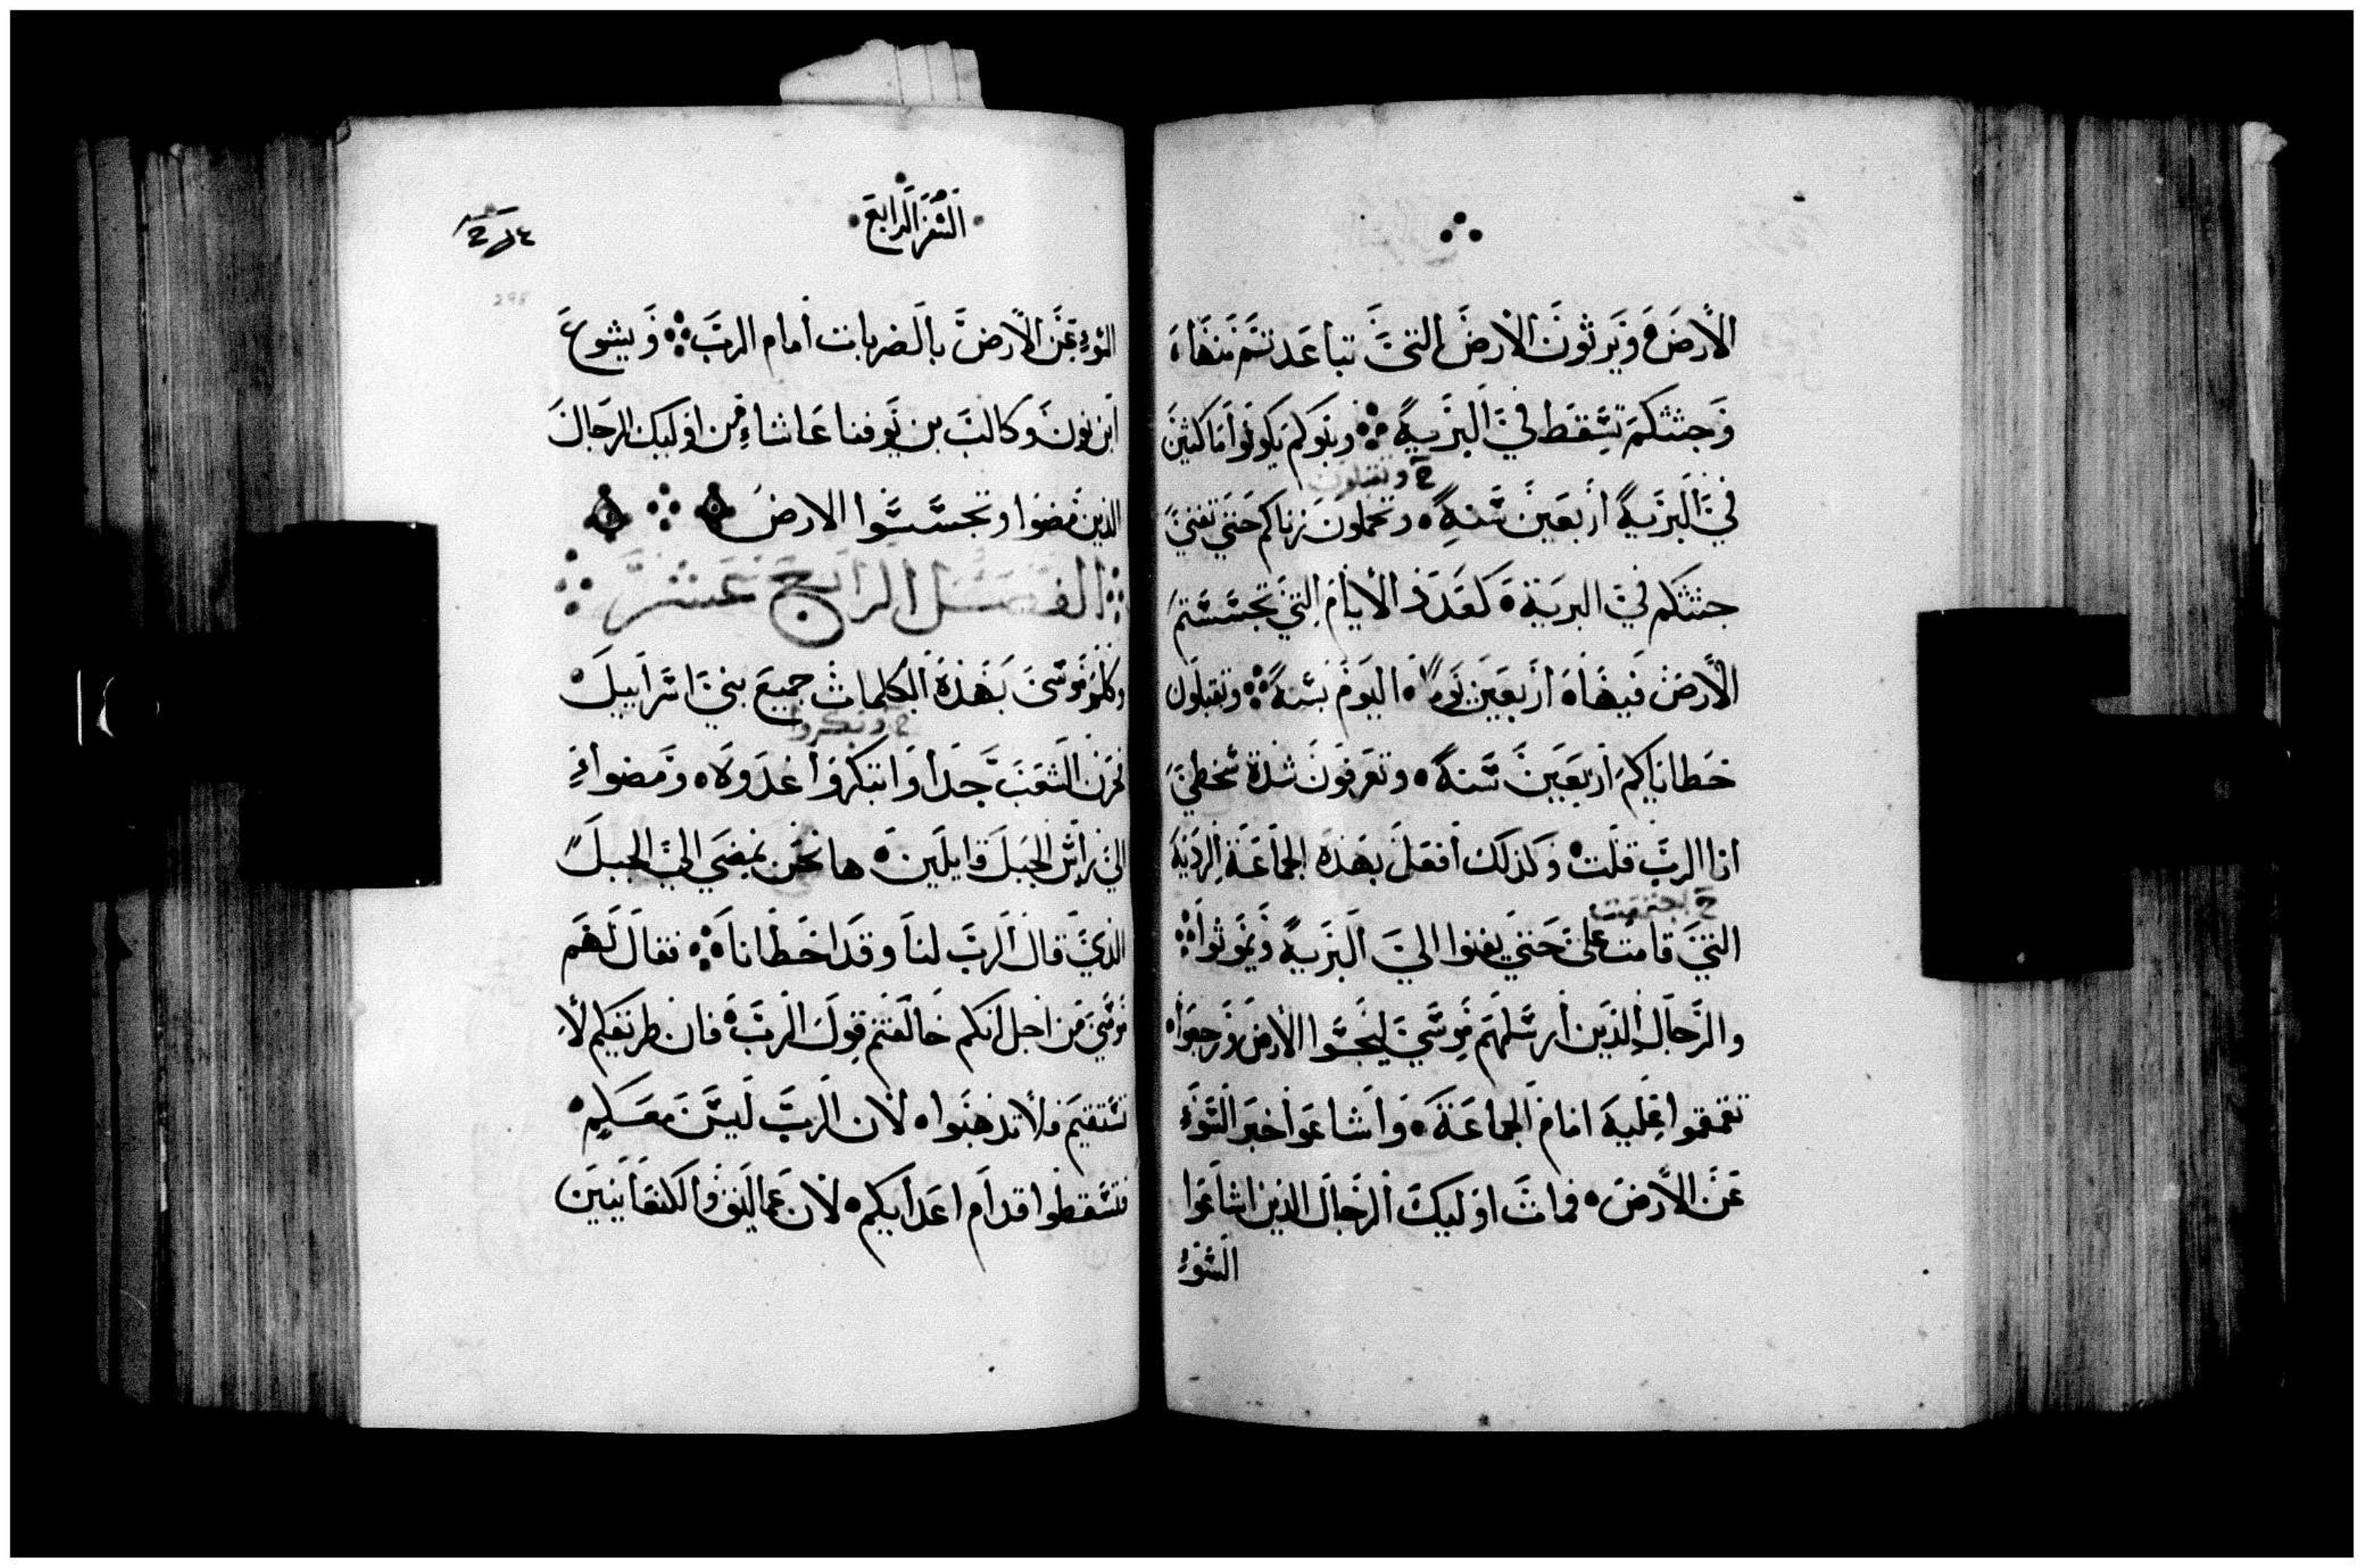 الأرض ويرثون الأرض التي تباعدتم منها
وجثثكم تسقط في البرية وبنوكم يكونوا ماكثين
في البرية أربعين سنة وتحملون زناكم حتي تفني
جثثكم في البرية كعدد الأيام التي تجسستم
الأرض فيها أربعين يوما اليوم بسنة وتقبلون
خطاياكم أربعين سنة وتعرفون شدة سخطي
انا الرب قلت وكذلك أفعل بهذه الجماعة الردية
التي قامت علي حتي يفنوا الي البرية ويموثوا
والرجال الذين أرسلهم موسي ليجسوا الأرض ورجعوا
تقمقموا عليه امام الجماعة واشاعوا خبر السوء
عن الأرض فمات اوليك الرجال الذين اشاعوا
السوء
السفر الرابع
298
السوء عن الأرض بالضربات أمام الرب ويشوع
ابن نون وكالب بن يوفنا عاشاء من اوليك الرجال
الذين مضوا وتجسسوا الارض
الفصل الرابع عشر
وكلم موسي بهذه الكلمات جميع بني اسراييل
فحزن الشعب جدا وابتكروا غدوة ومضوا
الي راس الجبل قايلين ها نحن نمضي الي الجبل
الذي قال الرب لنا وقد اخطانا فقال لهم
موسي من اجل أنكم خالفتم قول الرب فان طريقكم لا
تستقيم فلا تذهبوا لان الرب ليس معكم
فتسقطوا قدام اعدايكم لان عماليق والكنعانيين